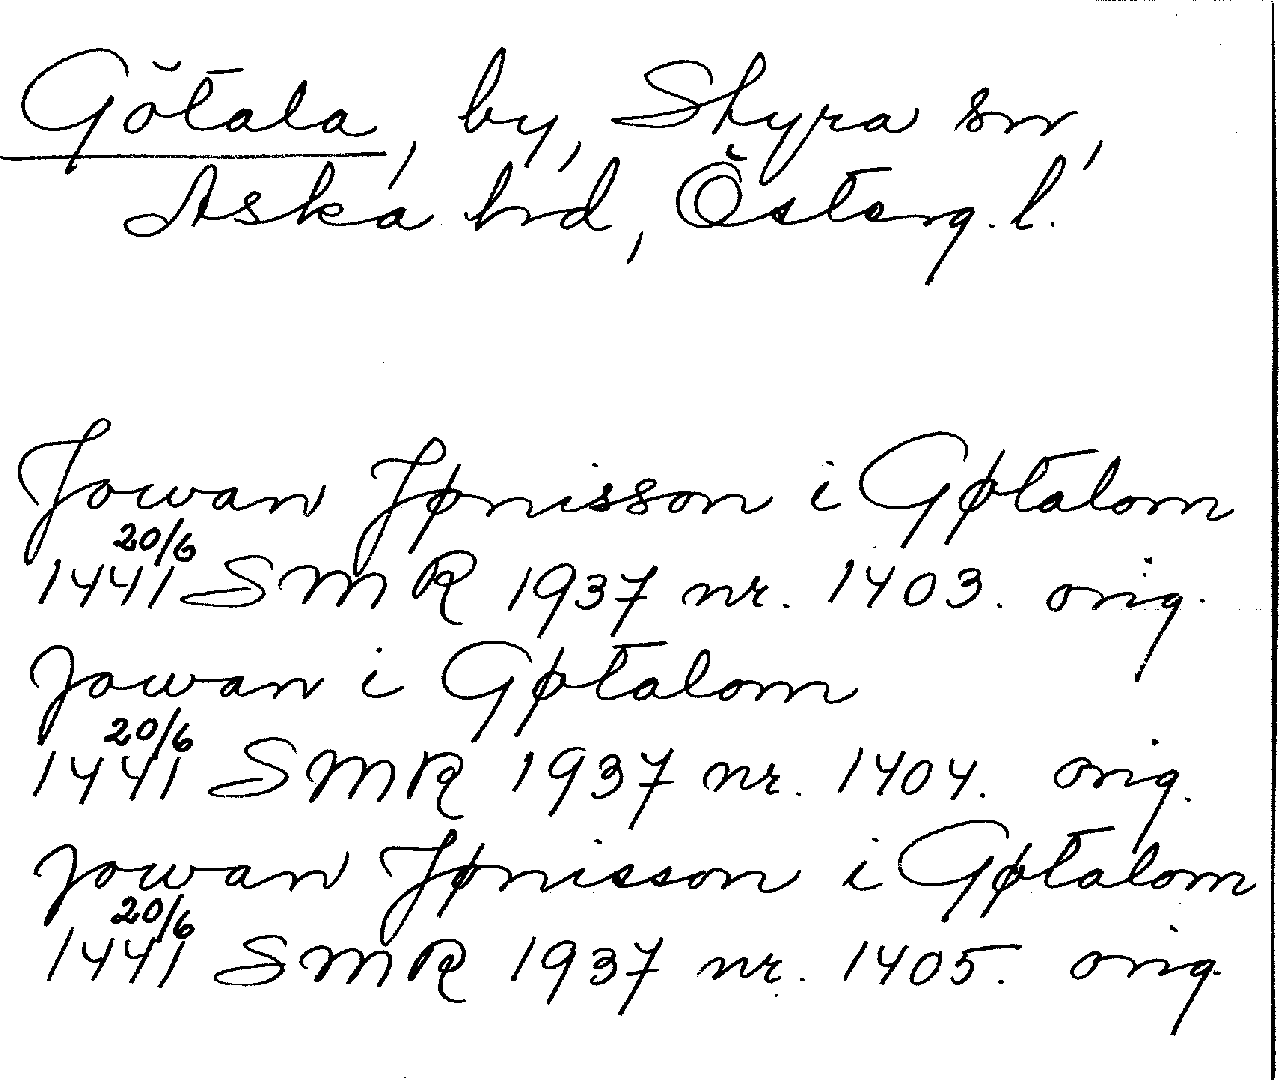 Götala, by, Styra sn,
Aska hd, Österg. l.
Jowan Jønisson i Gøtalom
20/6
1441 SMR 1937 nr. 1403. orig.
Jowan i Gøtalom
20/6
1441 SMR 1937 nr. 1404. orig.
Jowan Jønisson i Gøtalom
20/6
1441 SMR 1937 nr. 1405. orig